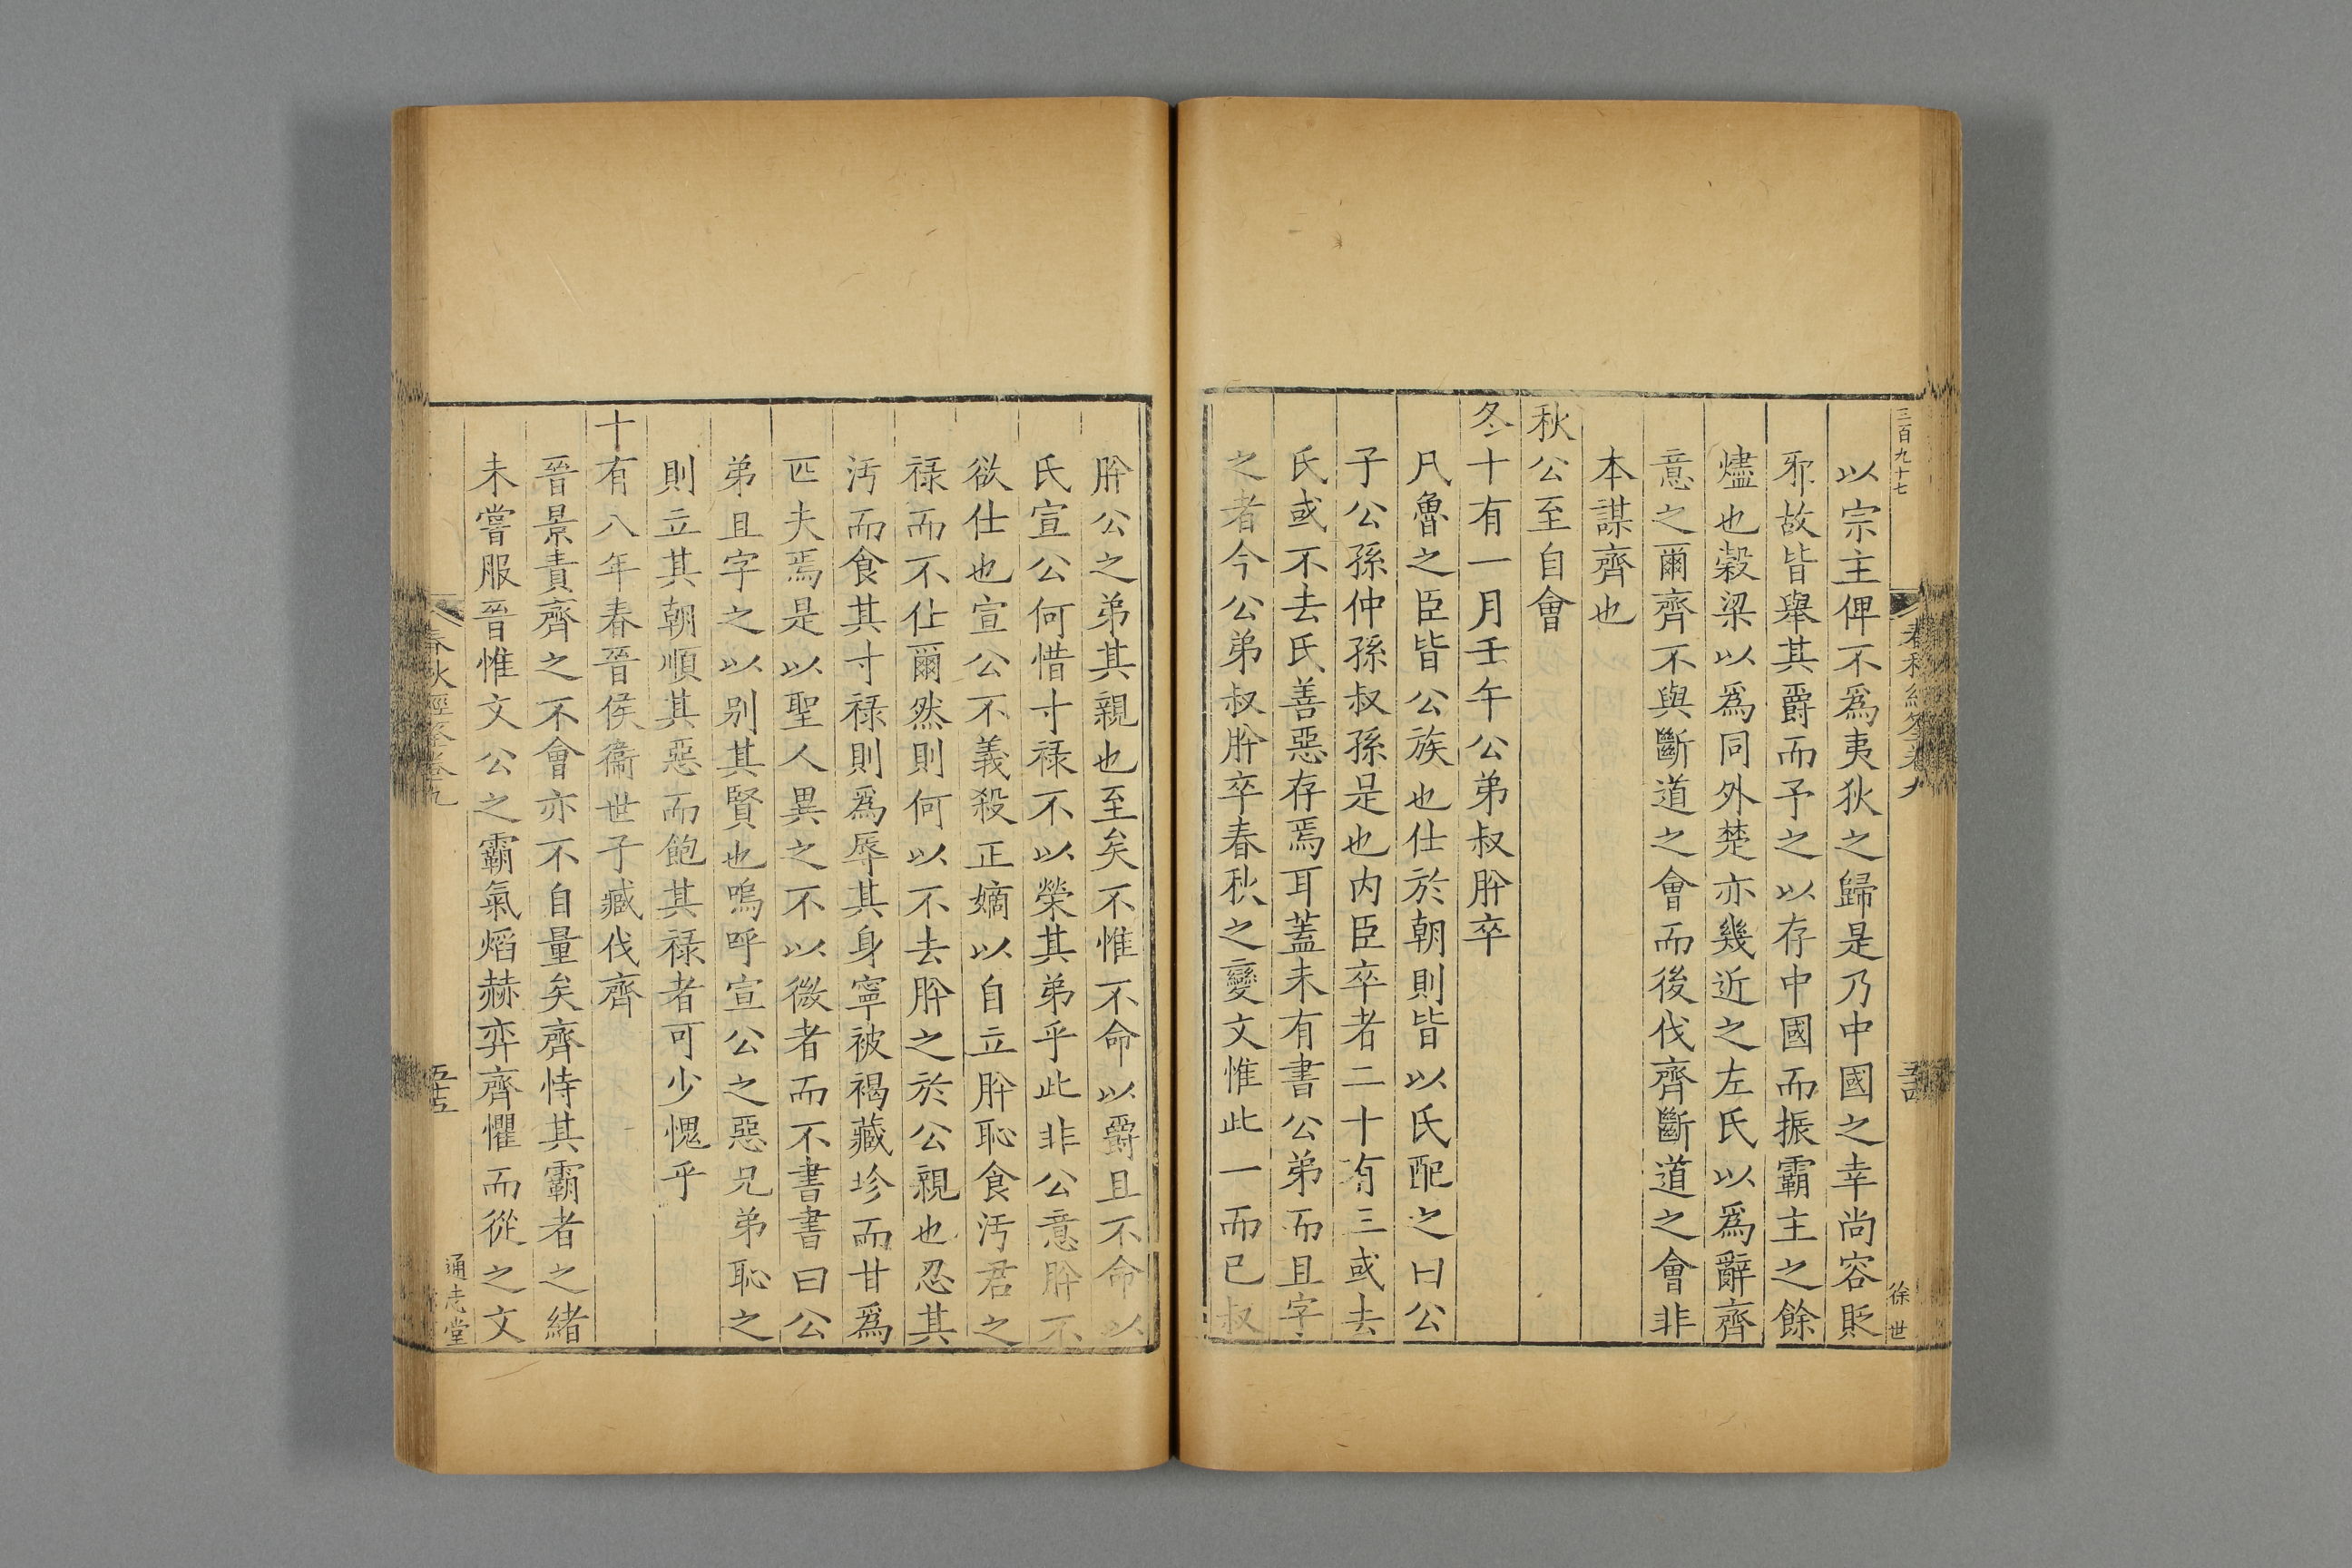 三百九十七
徐世
以宗主俾不爲夷狄之歸是乃中國之幸尚容貶
邪故皆舉其爵而予之以存中國而振霸主之餘
燼也榖梁以爲同外楚亦幾近之左氏以爲辭齊
意之爾齊不與斷道之會而後伐齊斷道之會非
本謀齊也
秋公至自會
冬十有一月壬午公弟叔肸卒
凡魯之臣皆公族也仕於朝則皆以氏配之曰公
子公孫仲孫叔孫是也内臣卒者二十有三或去
氏或不去氏善惡存焉耳蓋未有書公弟而且字
之者今公弟叔肸卒春秋之變文惟此一而已叔
肸公之弟其親也至矣不惟不命以爵且不命以
氏宣公何惜寸禄不以榮其弟乎此非公意肸不
欲仕也宣公不義殺正嫡以自立肸恥食汚君之
禄而不仕爾然則何以不去肸之於公親也忍其
汚而食其寸禄則爲辱其身寧被褐藏珍而甘爲
匹夫焉是以聖人異之不以微者而不書書曰公
弟且字之以别其賢也嗚呼宣公之惡兄弟恥之
則立其朝順其惡而飽其禄者可少愧乎
十有八年春晉侯衞世子臧伐齊
晉景責齊之不會亦不自量矣齊恃其霸者之緒
未嘗服晉惟文公之霸氣熖赫弈齊懼而從之文
春秋經筌卷九
五十五
通志堂